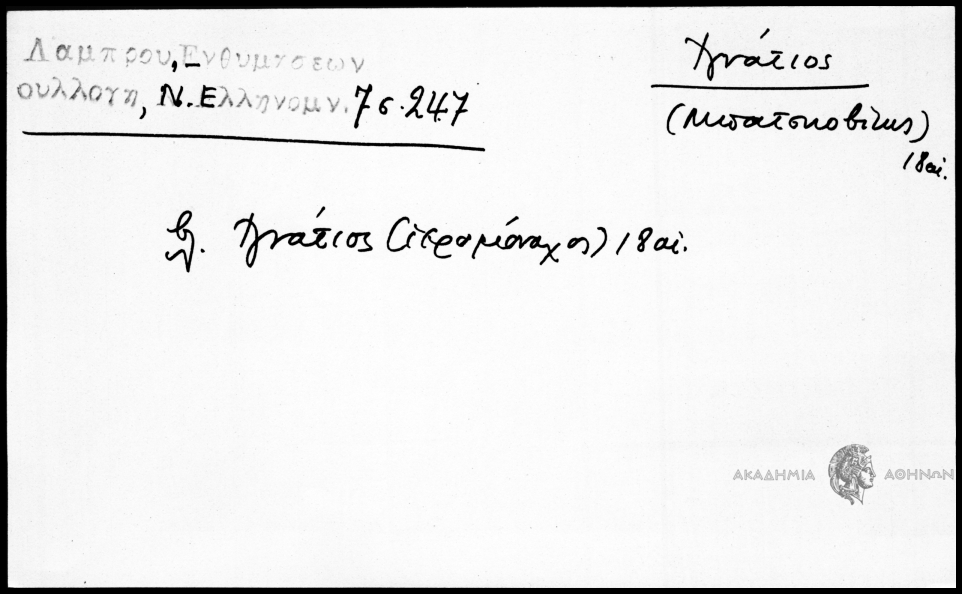 Λαμπρου, Ενθυμησεων
συλλογη, Ν. Ελληνομν. 7 σ. 247
Ἰγνάτιος
(Μπατσκοβίτης)
18 αἰ.
βλ. Ἰγνάτιος (ἱερομόναχος) 18 αἰ.
ΑΚΑΔΗΜΙΑ ΑΘΗΝΩΝ